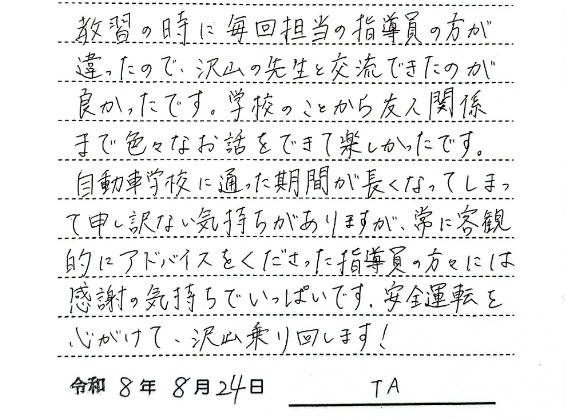 教習の時に毎回担当の指導員の方が
違ったので、沢山の先生と交流できたのが
良かったです。学校のことから友人関係
まで色々なお話をできて楽しかったです。
自動車学校に通った期間が長くなってしまっ
て申し訳ない気持ちがありますが、常に客観
的にアドバイスをくださった指導員の方々には
感謝の気持ちでいっぱいです。安全運転を
心がけて、沢山乗り回します!
令和 8年 8月24日 TA